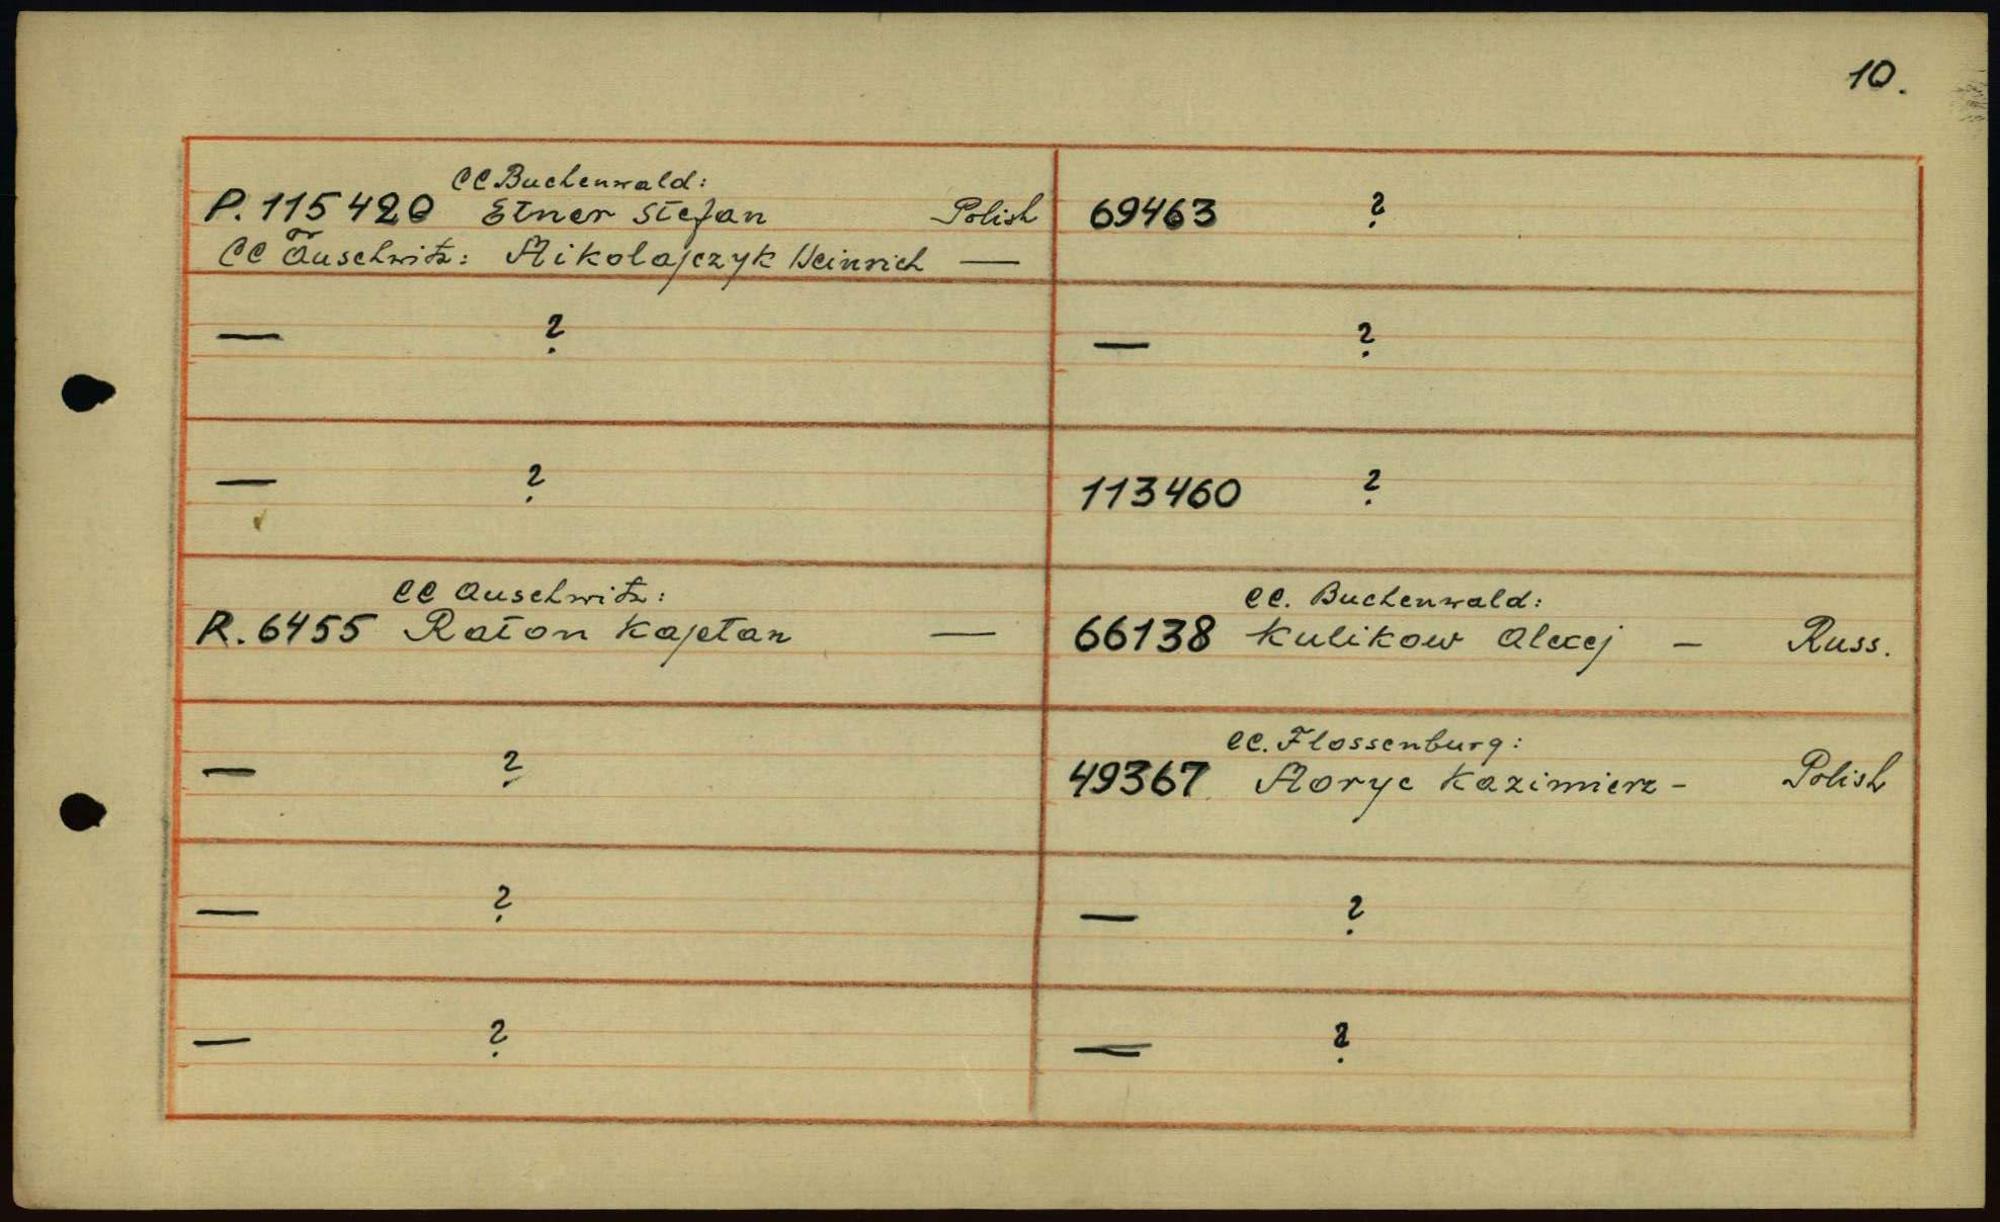 10.
CC Buchenwald:
P. 115420 Etner Stefan Polish
or
CC Auschwitz: Mikolajczyk Heinrich —
69463 ?
— ?
— ?
— ?
113460 ?
CC Auschwitz:
R. 6455 Raton Kajetan —
CC. Buchenwald:
66138 Kulikow Alexej — Russ.
— ?
CC. Flossenburg:
49367 Moryc Kazimierz - Polish
— ?
— ?
— ?
— ?